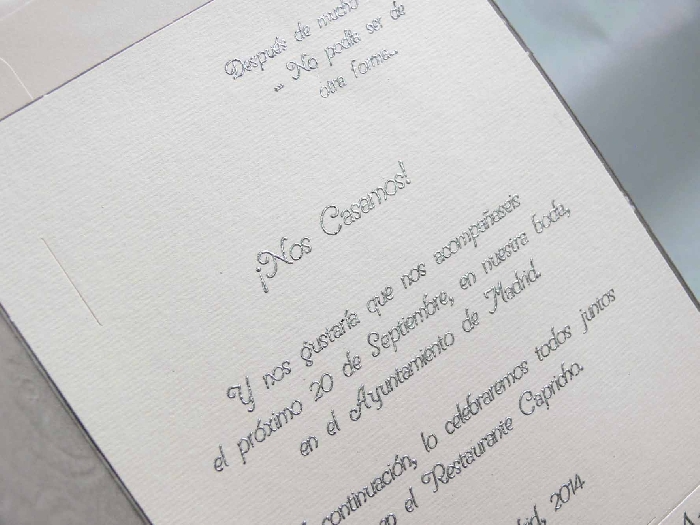 Después de mucho
... No podía ser de
otra forma...
¡Nos Casamos!
Y nos gustaría que nos acompañaseis
el próximo 20 de Septiembre, en nuestra boda,
en el Ayuntamiento de Madrid.
continuación, lo celebraremos todos juntos
en el Restaurante Capricho.
2014